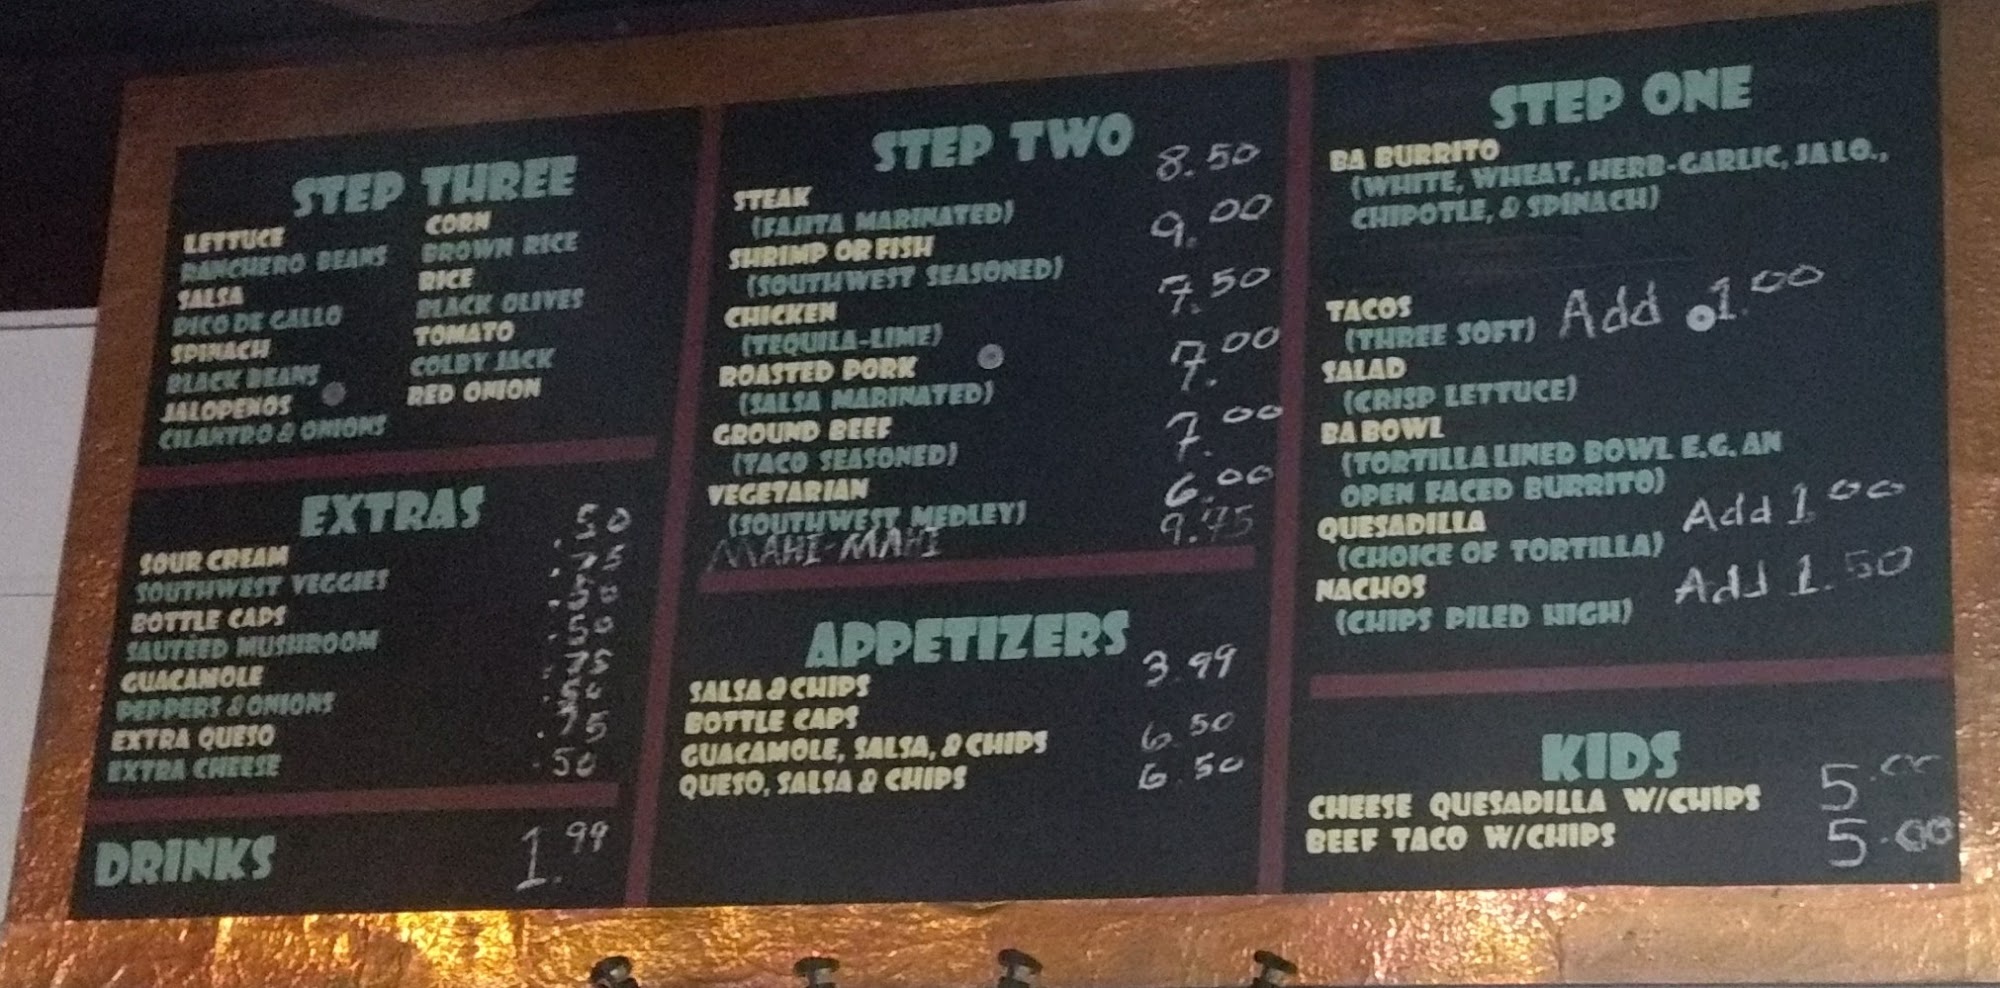 STEP THREE
LETTUCE
RANCHERO BEANS
SALSA
PICO DE GALLO
SPINACH
BLACK BEANS
JALOPENOS
CILANTRO & ONIONS
CORN
BROWN RICE
RICE
BLACK OLIVES
TOMATO
COLBY JACK
RED ONION
EXTRAS
SOUR CREAM .50
SOUTHWEST VEGGIES .75
BOTTLE CAPS .50
SAUTEED MUSHROOM .50
GUACAMOLE .75
PEPPERS & ONIONS .50
EXTRA QUESO .75
EXTRA CHEESE .50
DRINKS 1.99
STEP TWO
STEAK 8.50
(FAJITA MARINATED)
SHRIMP OR FISH 9.00
(SOUTHWEST SEASONED)
CHICKEN 7.50
(TEQUILA-LIME)
ROASTED PORK 7.00
(SALSA MARINATED)
GROUND BEEF 7.00
(TACO SEASONED)
VEGETARIAN 6.00
(SOUTHWEST MEDLEY)
MAHI-MAHI 9.75
APPETIZERS
SALSA & CHIPS 3.99
BOTTLE CAPS
GUACAMOLE, SALSA, & CHIPS 6.50
QUESO, SALSA & CHIPS 6.50
STEP ONE
BA BURRITO
(WHITE, WHEAT, HERB-GARLIC, JALO.,
CHIPOTLE, & SPINACH)
TACOS
(THREE SOFT) Add 1.00
SALAD
(CRISP LETTUCE)
BA BOWL
(TORTILLA LINED BOWL E.G. AN
OPEN FACED BURRITO)
QUESADILLA Add 1.00
(CHOICE OF TORTILLA)
NACHOS Add 1.50
(CHIPS PILED HIGH)
KIDS
CHEESE QUESADILLA W/CHIPS 5.00
BEEF TACO W/CHIPS 5.00